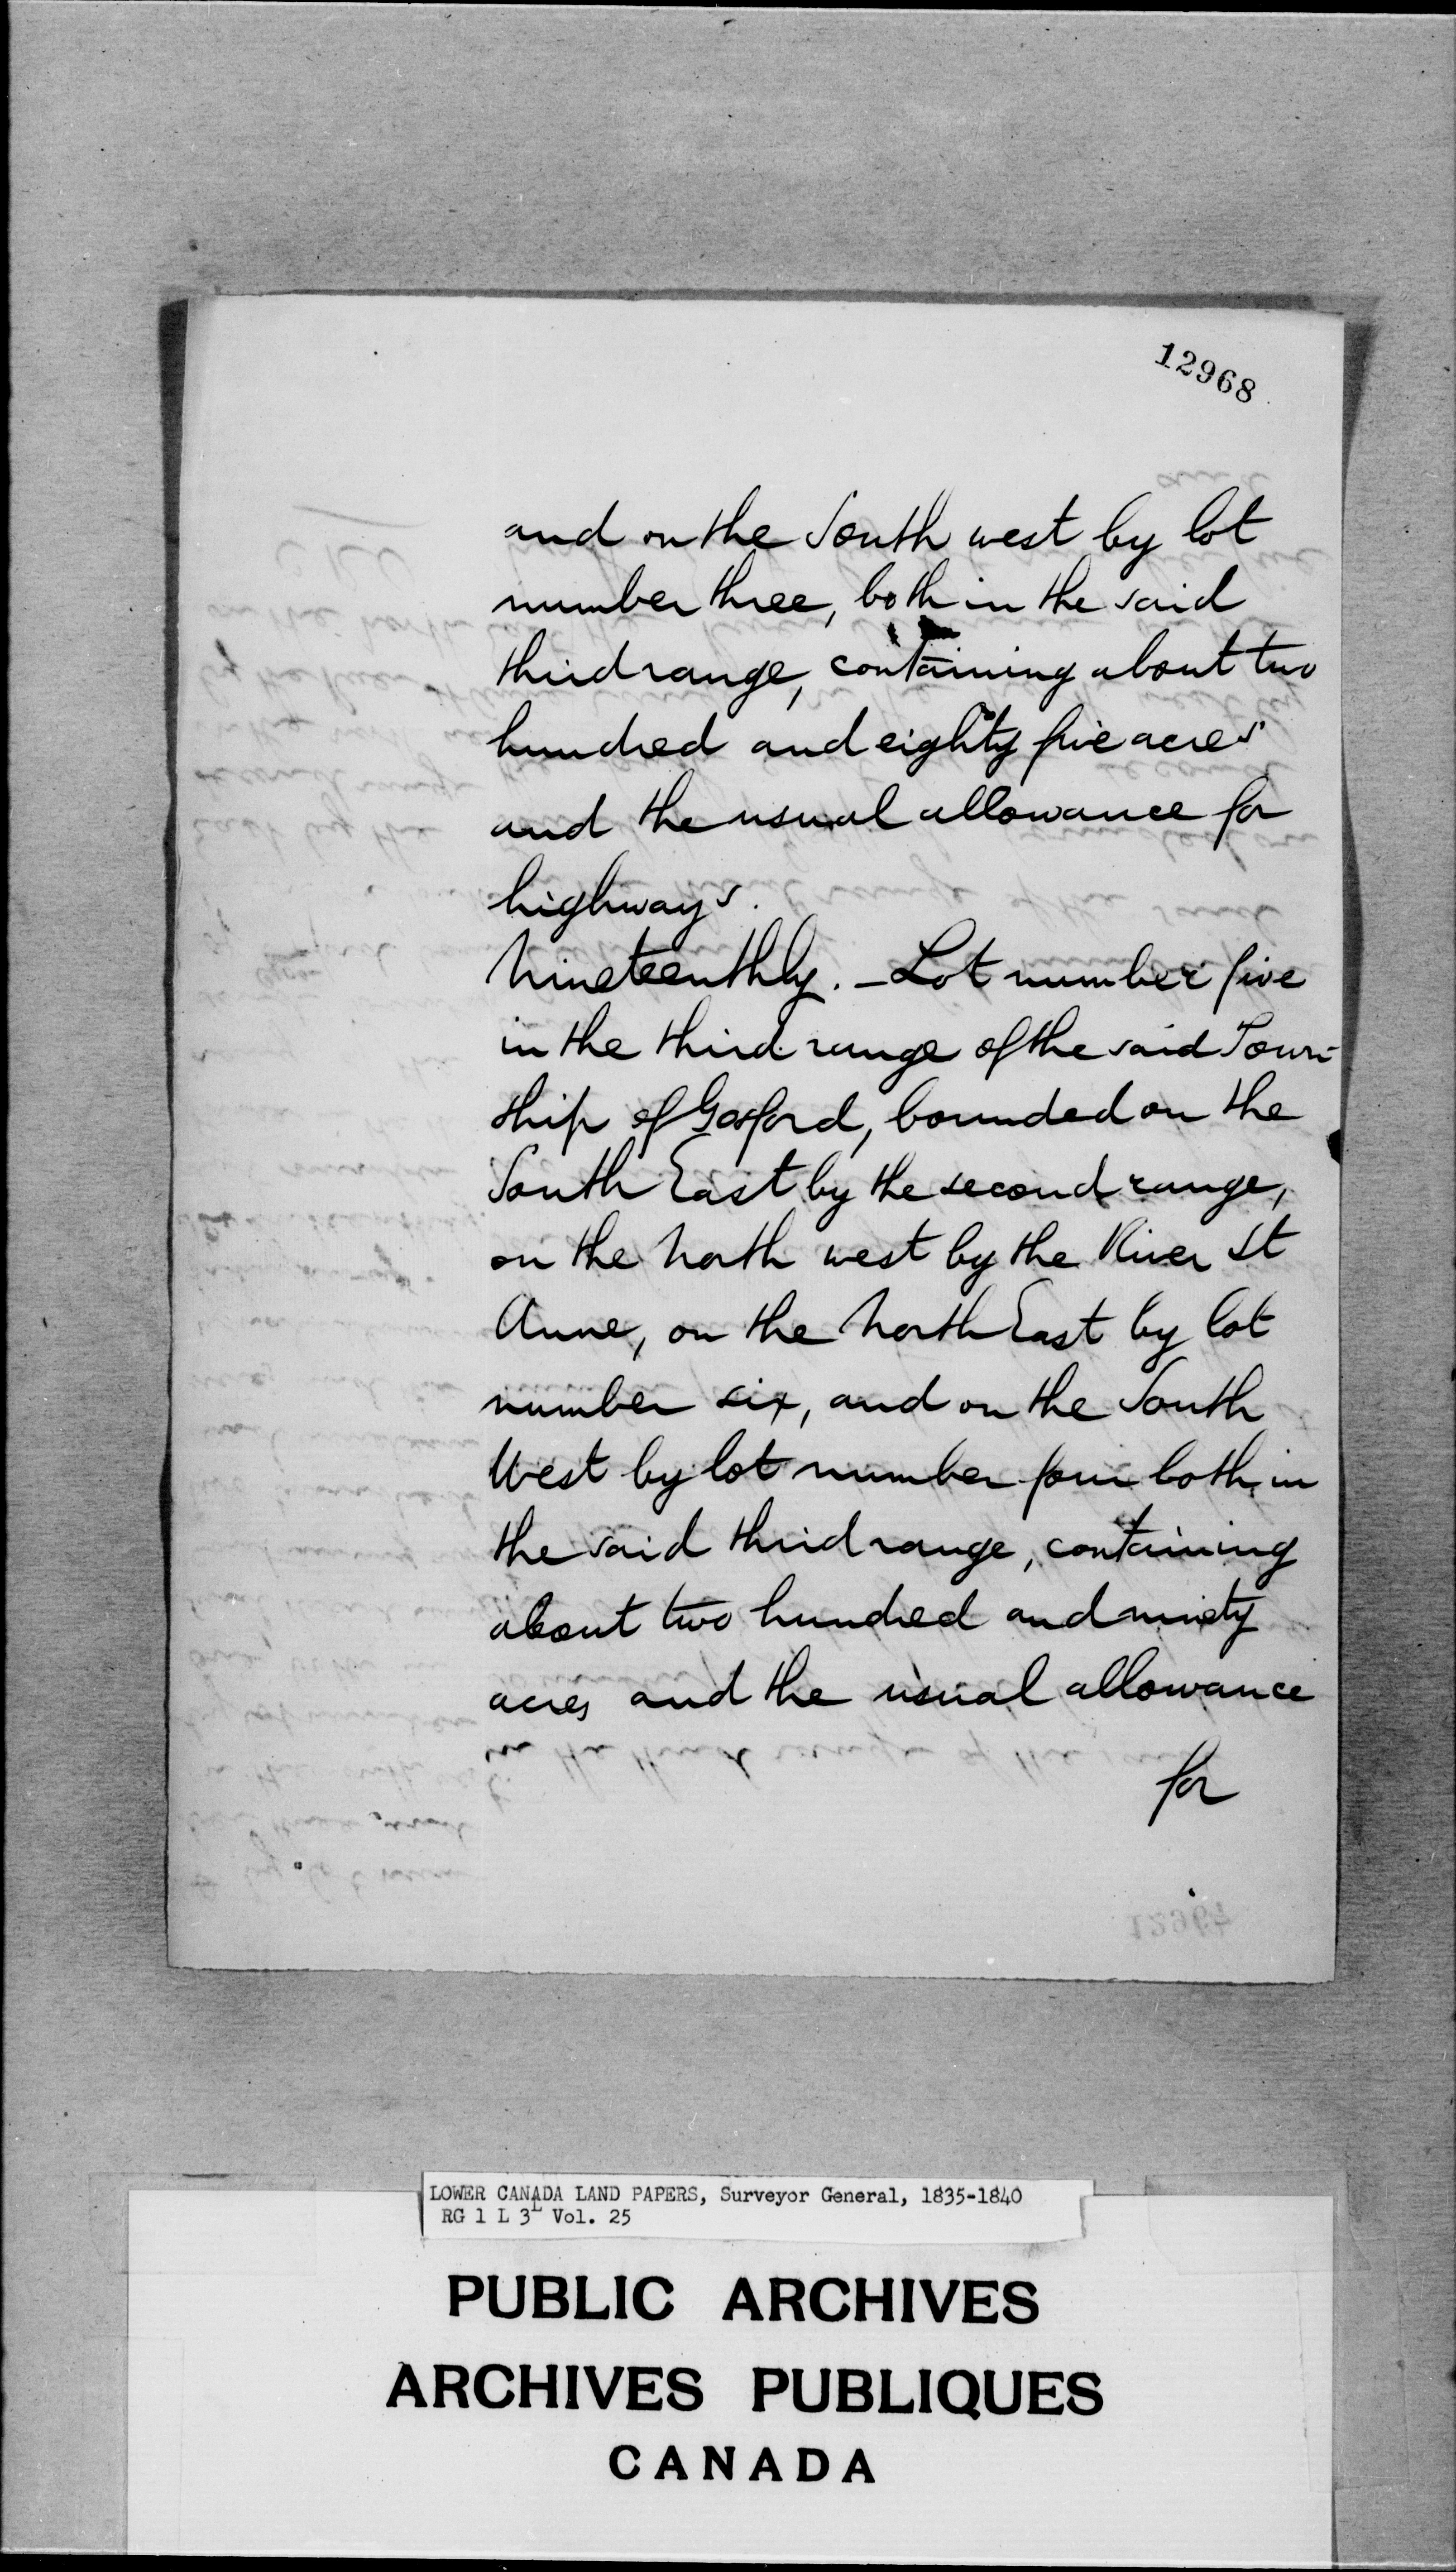 12968
and on the South west by lot
number three, both in the said
third range, containing about two
hundred and eighty five acres
and the usual allowance for
highways.
Nineteenthly. – Lot number five
in the third range of the said Town-
ship of Gosford, bounded on the
South East by the second range,
on the North west by the River St
Anne, on the North East by lot
number six, and on the South
West by lot number four both in
the said third range, containing
about two hundred and ninety
acres and the usual allowance
for
LOWER CANADA LAND PAPERS, Surveyor General, 1835-1840
RG 1 L 3L Vol. 25
PUBLIC ARCHIVES
ARCHIVES PUBLIQUES
CANADA